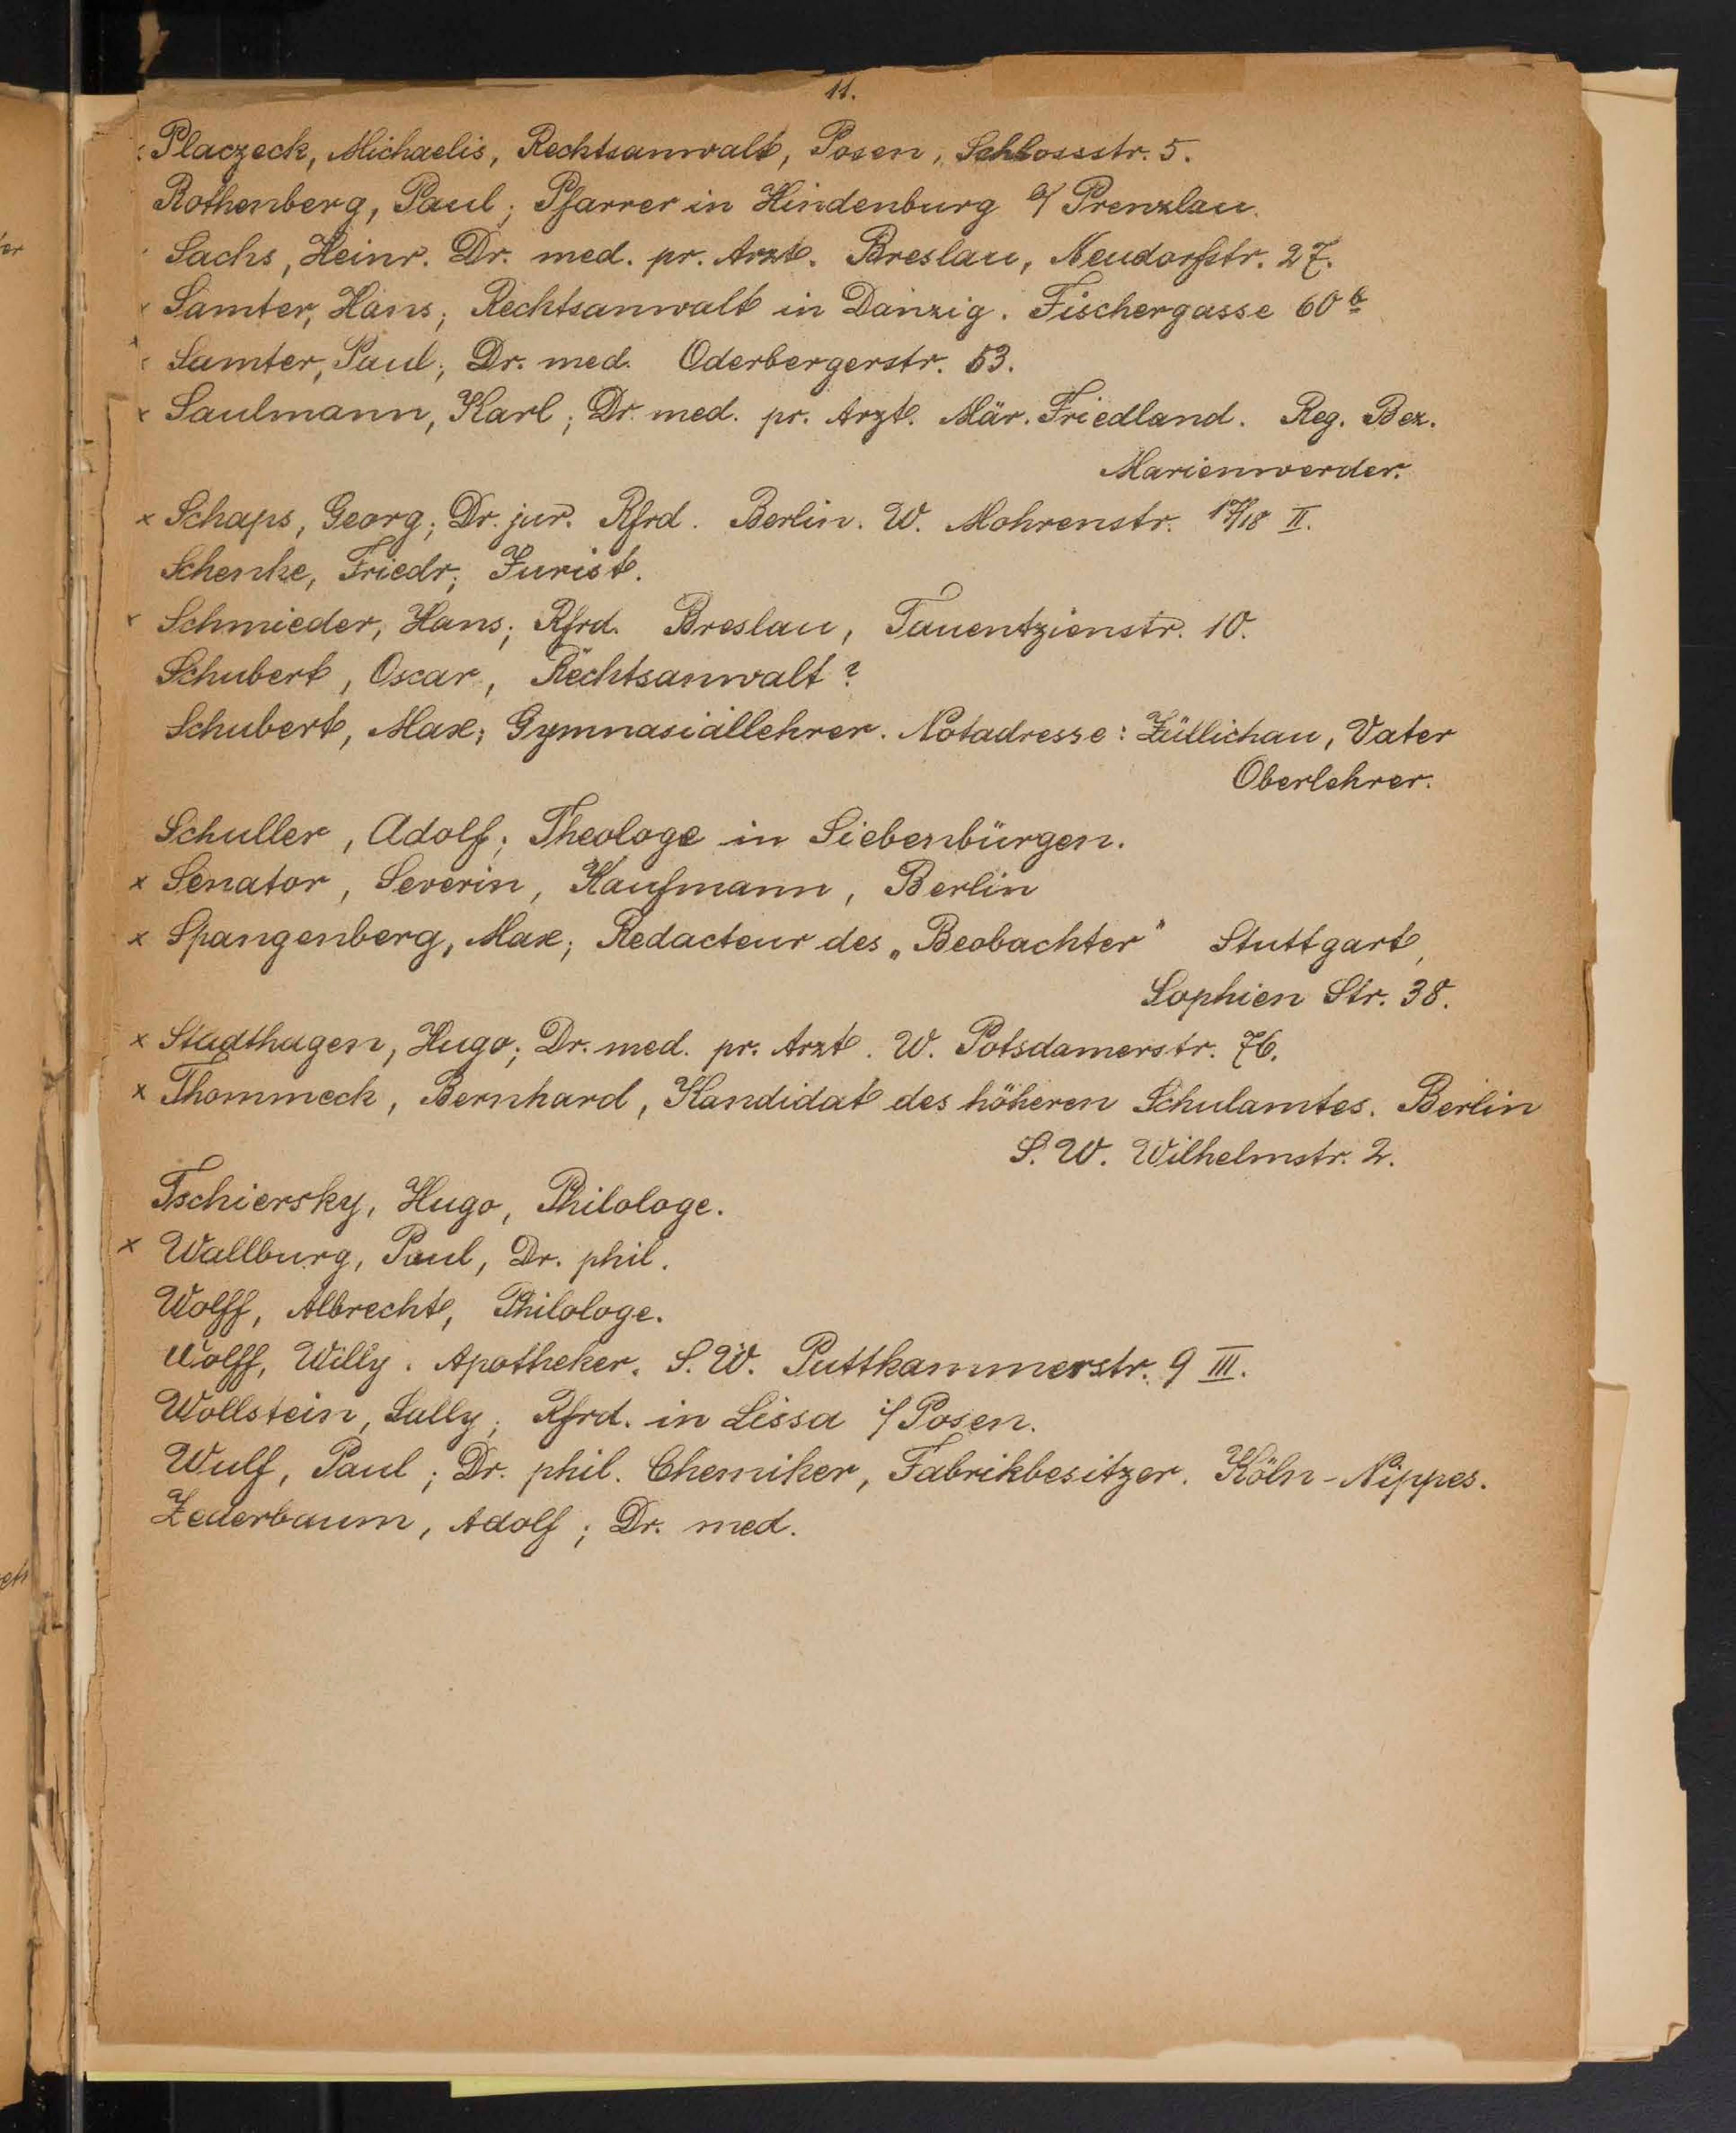 11.
Placzeck, Michaelis, Rechtsanwalt, Posen, Schlossstr. 5.
Rothenberg, Paul; Pfarrer in Hindenburg b/ Prenzlau.
Sachs, Heinr. Dr. med. pr. Arzt. Breslau, Neudorfstr. 27.
x Samter, Hans; Rechtsanwalt in Danzig. Fischergasse 60 b
x Samter, Paul; Dr. med. Oderbergerstr. 53.
x Saulmann, Karl; Dr. med. pr. Arzt. Mär. Friedland. Reg. Bez.
Marienwerder.
x Schaps, Georg; Dr. jur. Rfrd. Berlin. W. Mohrenstr. 17/18 II.
Schenke, Friedr; Jurist.
x Schmieder, Hans; Rfrd. Breslau, Tauentzienstr. 10.
Schubert, Oscar, Rechtsanwalt?
Schubert, Max; Gymnasiallehrer. Notadresse: Züllichau, Vater
Oberlehrer.
Schuller, Adolf; Theologe in Siebenbürgen.
x Senator, Severin, Kaufmann, Berlin
x Spangenberg, Max; Redacteur des „Beobachter" Stuttgart,
Sophien Str. 38.
x Stadthagen, Hugo; Dr. med. pr. Arzt. W. Potsdamerstr. 76.
x Thommeck, Bernhard, Kandidat des höheren Schulamtes. Berlin
S. W. Wilhelmstr. 2.
Tschiersky, Hugo, Philologe.
x Wallburg, Paul, Dr. phil.
Wolff, Albrecht, Philologe.
Wolff, Willy. Apotheker. S. W. Puttkammerstr. 9 III.
Wollstein, Sally; Rfrd. in Lissa i/ Posen.
Wulf, Paul; Dr. phil. Chemiker, Fabrikbesitzer. Köln-Nippes.
Zederbaum, Adolf; Dr. med.